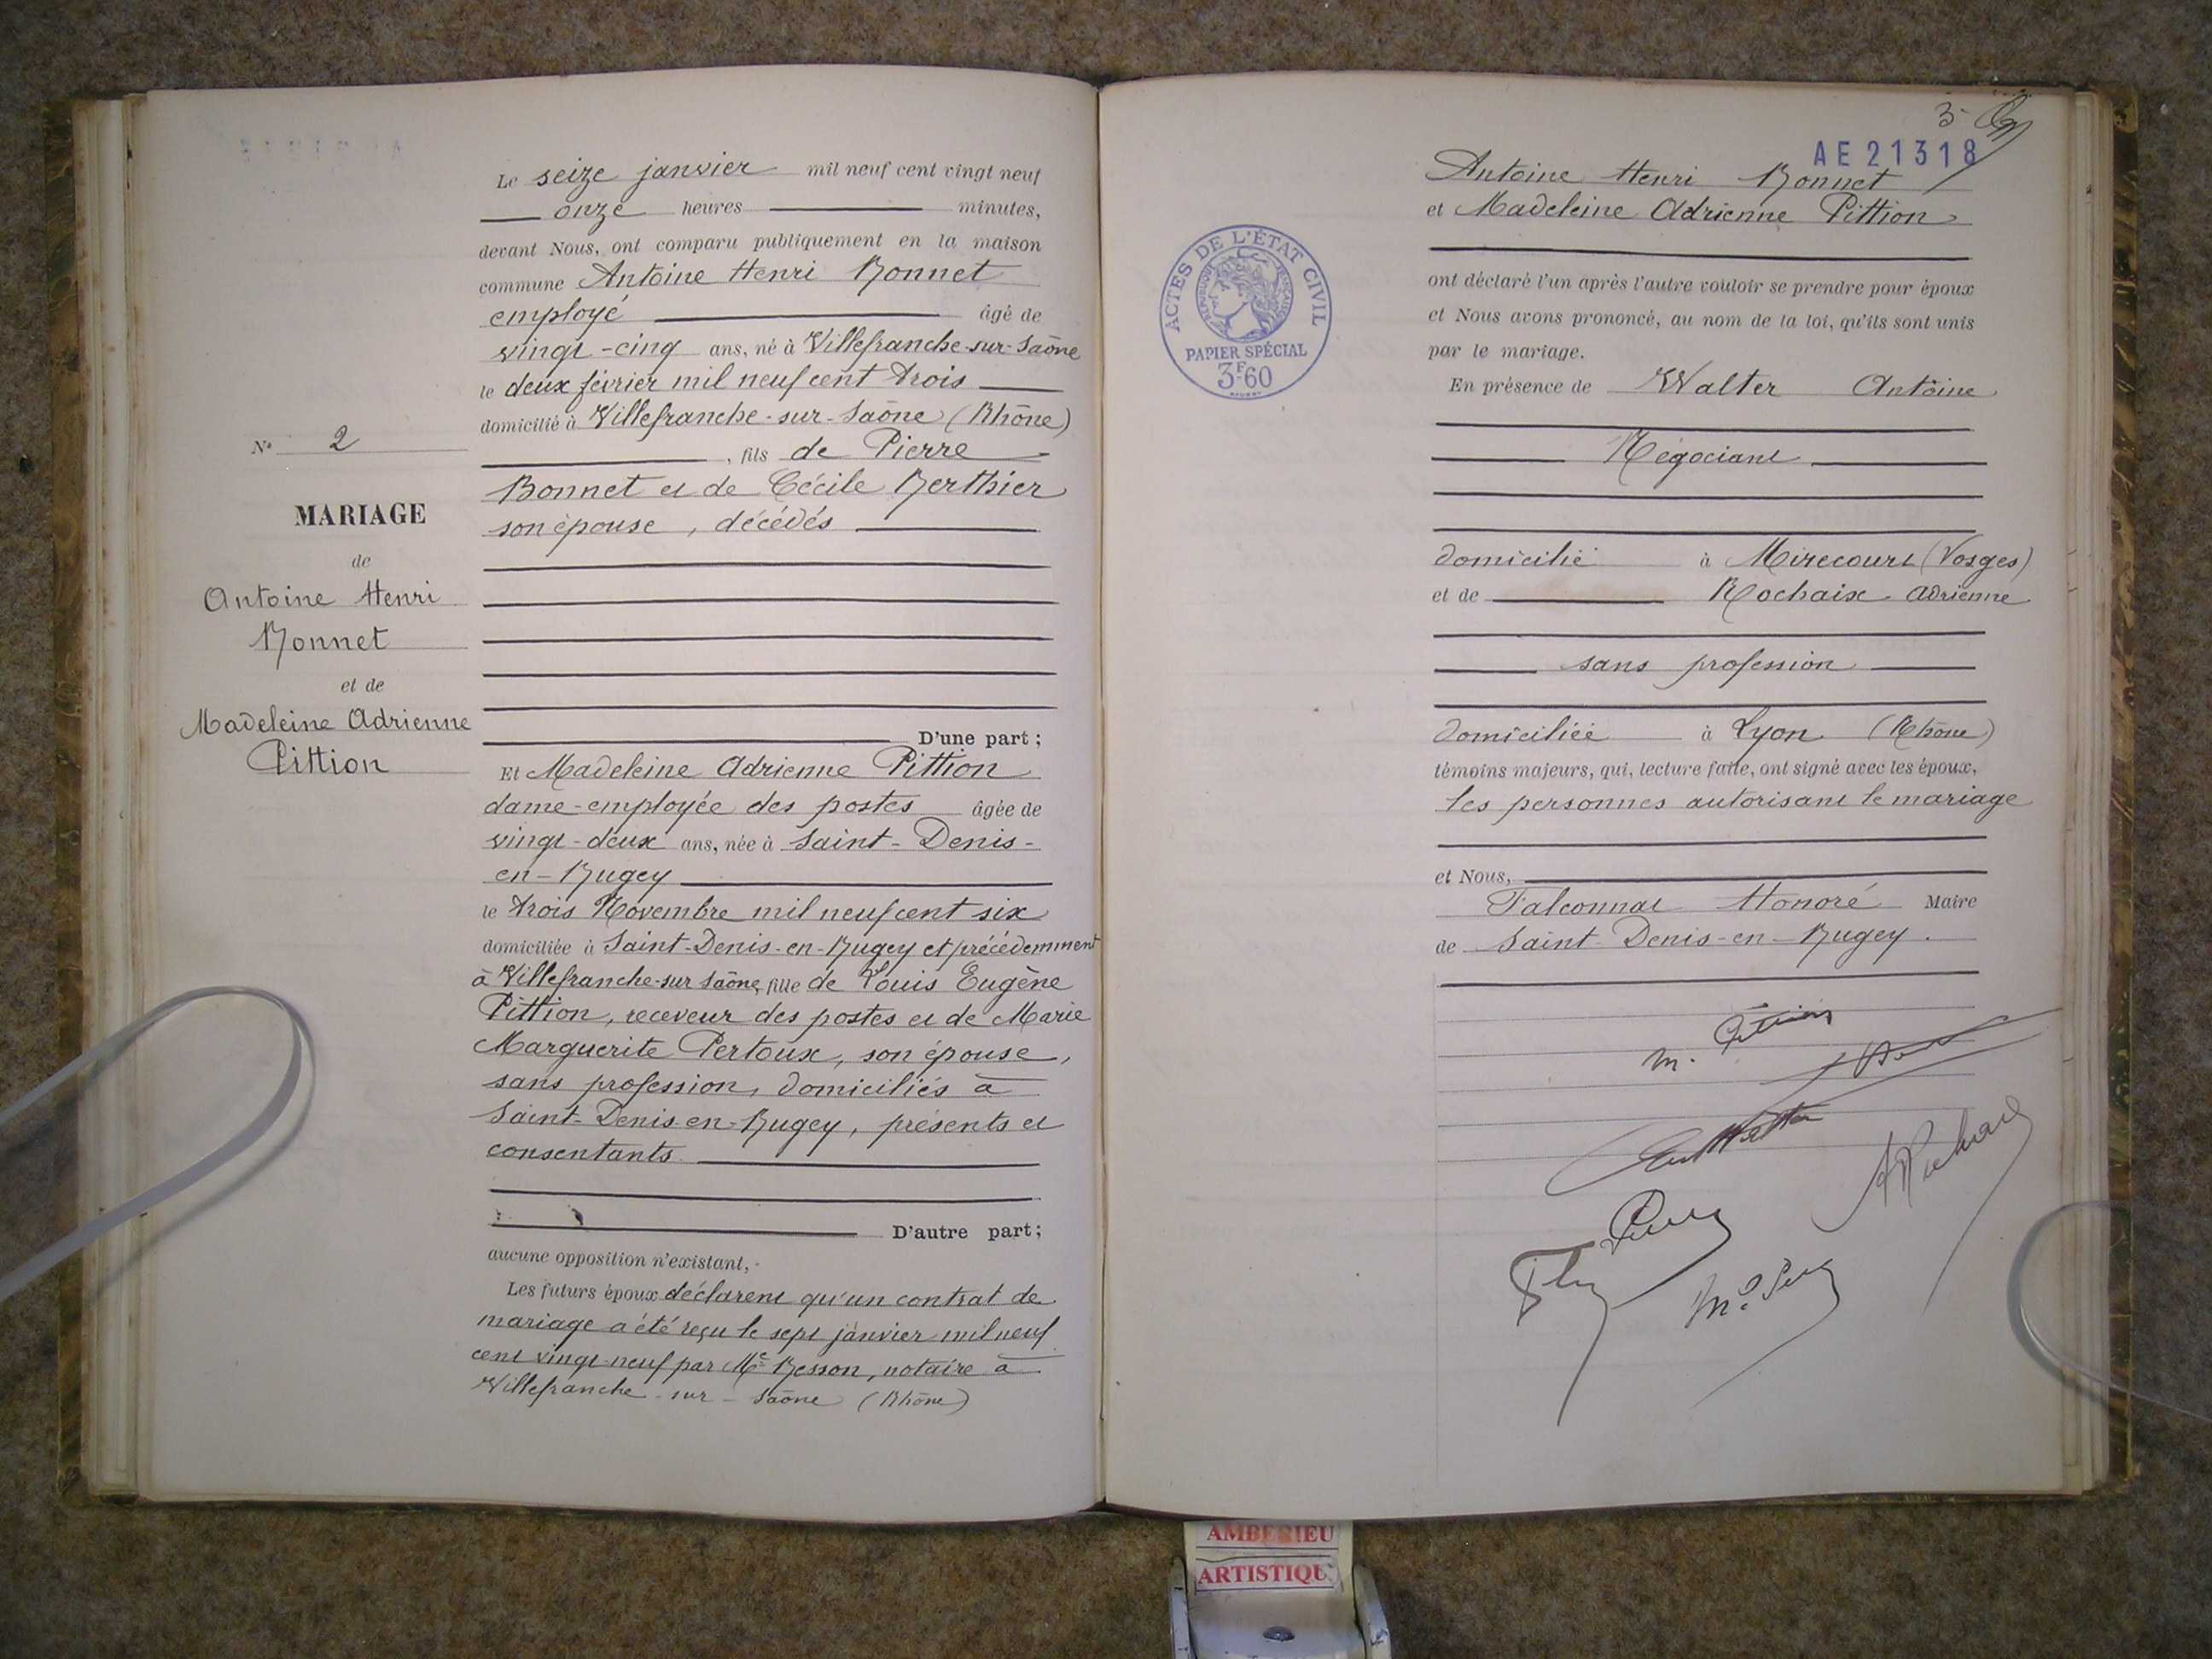 N° 2
MARIAGE
de
Antoine Henri
Bonnet
et de
Madeleine Adrienne
Pittion
Le seize janvier mil neuf cent vingt neuf
onze heures minutes,
devant Nous, ont comparu publiquement en la maison
commune Antoine Henri Bonnet
employé âgé de
vingt-cinq ans, né à Villefranche-sur-Saône
le deux février mil neuf cent trois
domicilié à Villefranche-sur-Saône (Rhône)
, fils de Pierre
Bonnet et de Cécile Berthier
son épouse, décédés
D'une part;
Et Madeleine Adrienne Pittion
dame-employée des postes âgée de
vingt-deux ans, née à Saint-Denis-
en-Bugey
le trois Novembre mil neuf cent six
domiciliée à Saint-Denis-en-Bugey et précédemment
à Villefranche-sur Saône, fille de Louis Eugène
Pittion, receveur des postes et de Marie
Marguerite Pertoux, son épouse,
sans profession, domiciliés à
Saint-Denis-en-Bugey, présents et
consentants
D'autre part;
aucune opposition n'existant,
Les futurs époux déclarent qu'un contrat de
mariage a été reçu le sept janvier mil neuf
cent vingt-neuf par Me Besson, notaire à
Villefranche-sur-Saône (Rhône)
3
AE 21318
Antoine Henri Bonnet
et Madeleine Adrienne Pittion
ACTES DE L'ÉTAT CIVIL
RÉPUBLIQUE FRANÇAISE
PAPIER SPÉCIAL
3F60
ont déclaré l'un après l'autre vouloir se prendre pour époux
et Nous avons prononcé, au nom de la loi, qu'ils sont unis
par le mariage.
En présence de Walter Antoine
Négociant
domicilié à Mirecourt (Vosges)
et de Rochaix Adrienne
sans profession
domiciliée à Lyon (Rhône)
témoins majeurs, qui, lecture faite, ont signé avec les époux,
les personnes autorisant le mariage
et Nous,
Falconnat Honoré Maire
de Saint-Denis-en-Bugey.
M. Pittion
AMBERIEU
ARTISTIQU